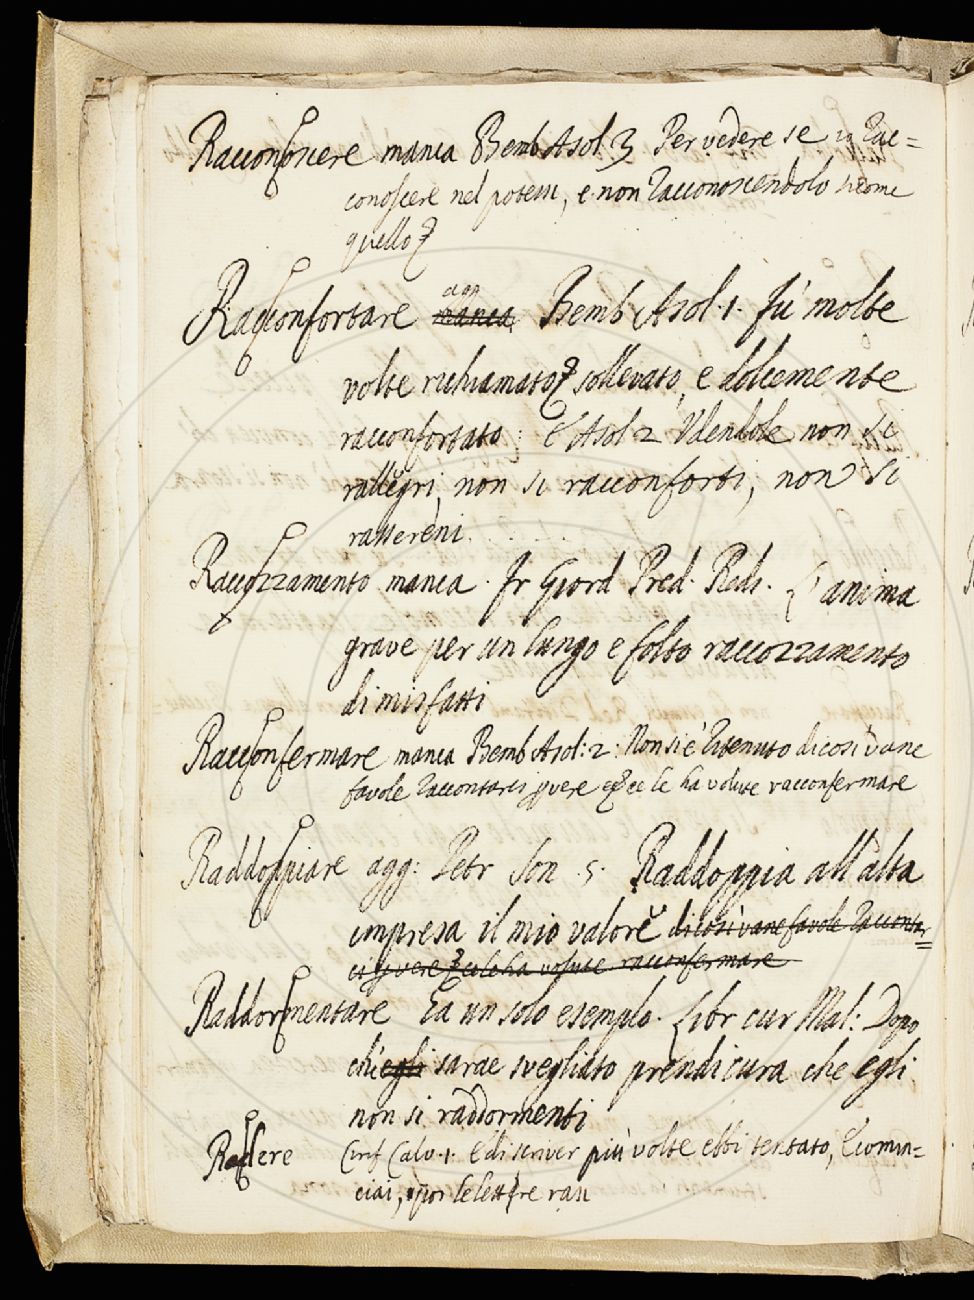 Racconoscere manca Bemb Asol. 3 Per vedere se io rac=
conoscere nel potessi, e non racconoscendolo sicome
quello
Racconfortare agg manca Bemb Asol. 1. fù molte
volte richiamato sollevato, e dolcemente
racconfortato: E Asol 2 Udendole non si
rallegri, non si racconforti, non si
rassereni.
Raccozzamento manca. Fr Giord Pred. Reds. L'anima
grave per un lungo e folto raccozzamento
di misfatti
Racconfermare manca Bemb Asol: 2: Non si è ritenuto di così vane
favole raccontarci, ce le ha volute racconfermare
Raddoppiare agg: Petr Son .5. Raddoppia all'alta
impresa il mio valore di così vane favole racconta=
ce le ha volute racconfermare
Raddormentare Ha un solo esemplo. Libr cur Mal: Dopo
ch'egli sarae svegliato prendi cura che egli
non si raddormenti
Radere Cirif Calv. 1. E di scriver più volte ebbi tentato, E comin=
ciai, poi le lettre rasi